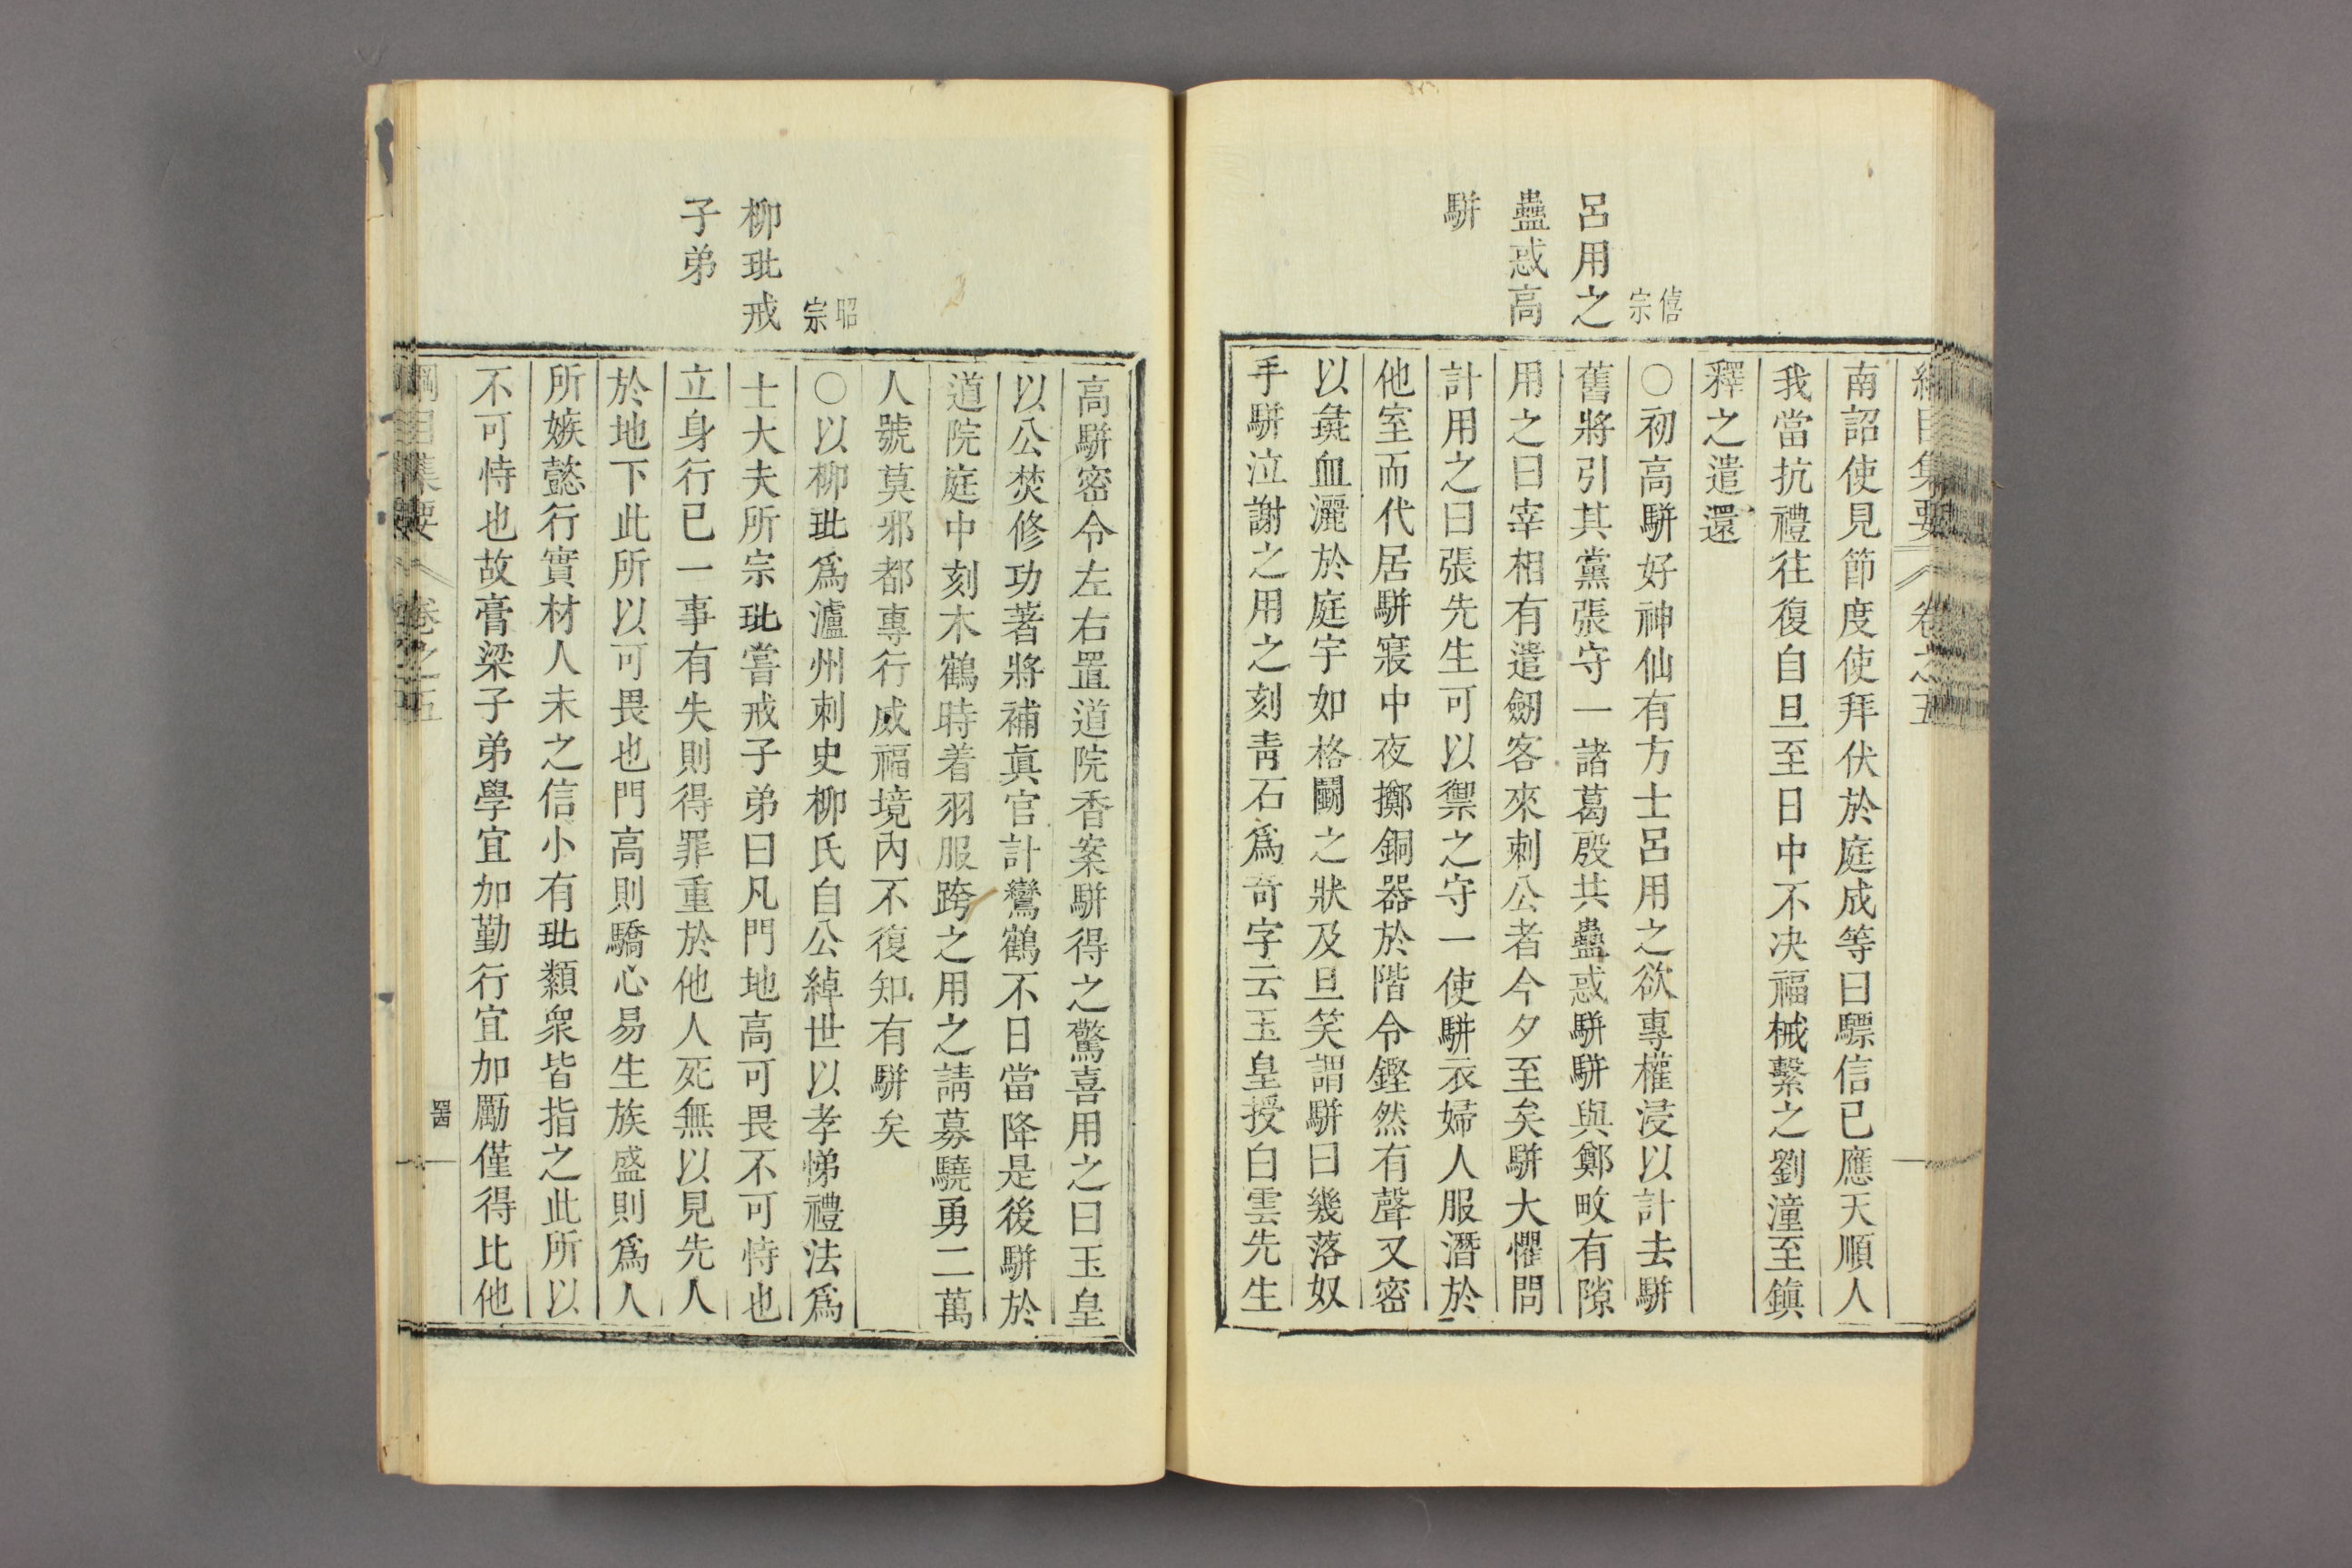 綱目集要 卷之五
南詔使見節度使拜伏於庭成等曰驃信已應天順人
我當抗禮往復自旦至日中不决福械繫之劉潼至鎭
釋之遣還
僖宗
呂用之
蠱惑高
駢
○初高駢好神仙有方士呂用之欲專權浸以計去駢
舊將引其黨張守一諸葛殷共蠱惑駢駢與鄭畋有隙
用之曰宰相有遣劒客來刺公者今夕至矣駢大懼問
計用之曰張先生可以禦之守一使駢衣婦人服潛於
他室而代居駢寢中夜擲銅器於階令鏗然有聲又密
以彘血灑於庭宇如格鬭之狀及旦笑謂駢曰幾落奴
手駢泣謝之用之刻靑石爲奇字云玉皇授白雲先生
高駢密令左右置道院香案駢得之驚喜用之曰玉皇
以公焚修功著將補眞官計鸞鶴不日當降是後駢於
道院庭中刻木鶴時着羽服跨之用之請募驍勇二萬
人號莫邪都專行威福境內不復知有駢矣
昭宗
柳玭戒
子弟
○以柳玭爲瀘州刺史柳氏自公綽世以孝悌禮法爲
士大夫所宗玭嘗戒子弟曰凡門地高可畏不可恃也
立身行已一事有失則得罪重於他人死無以見先人
於地下此所以可畏也門高則驕心易生族盛則爲人
所嫉懿行實材人未之信小有玭纇衆皆指之此所以
不可恃也故膏梁子弟學宜加勤行宜加勵僅得比他
綱目集要 卷之五